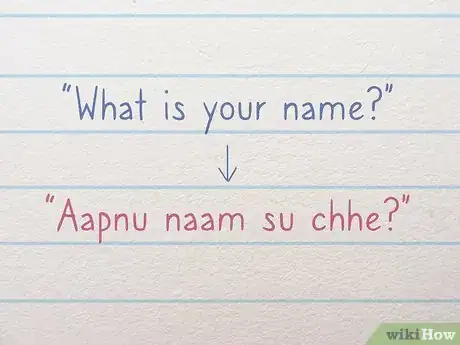 "What is your name?"
"Aapnu naam su chhe?"
wikiHow